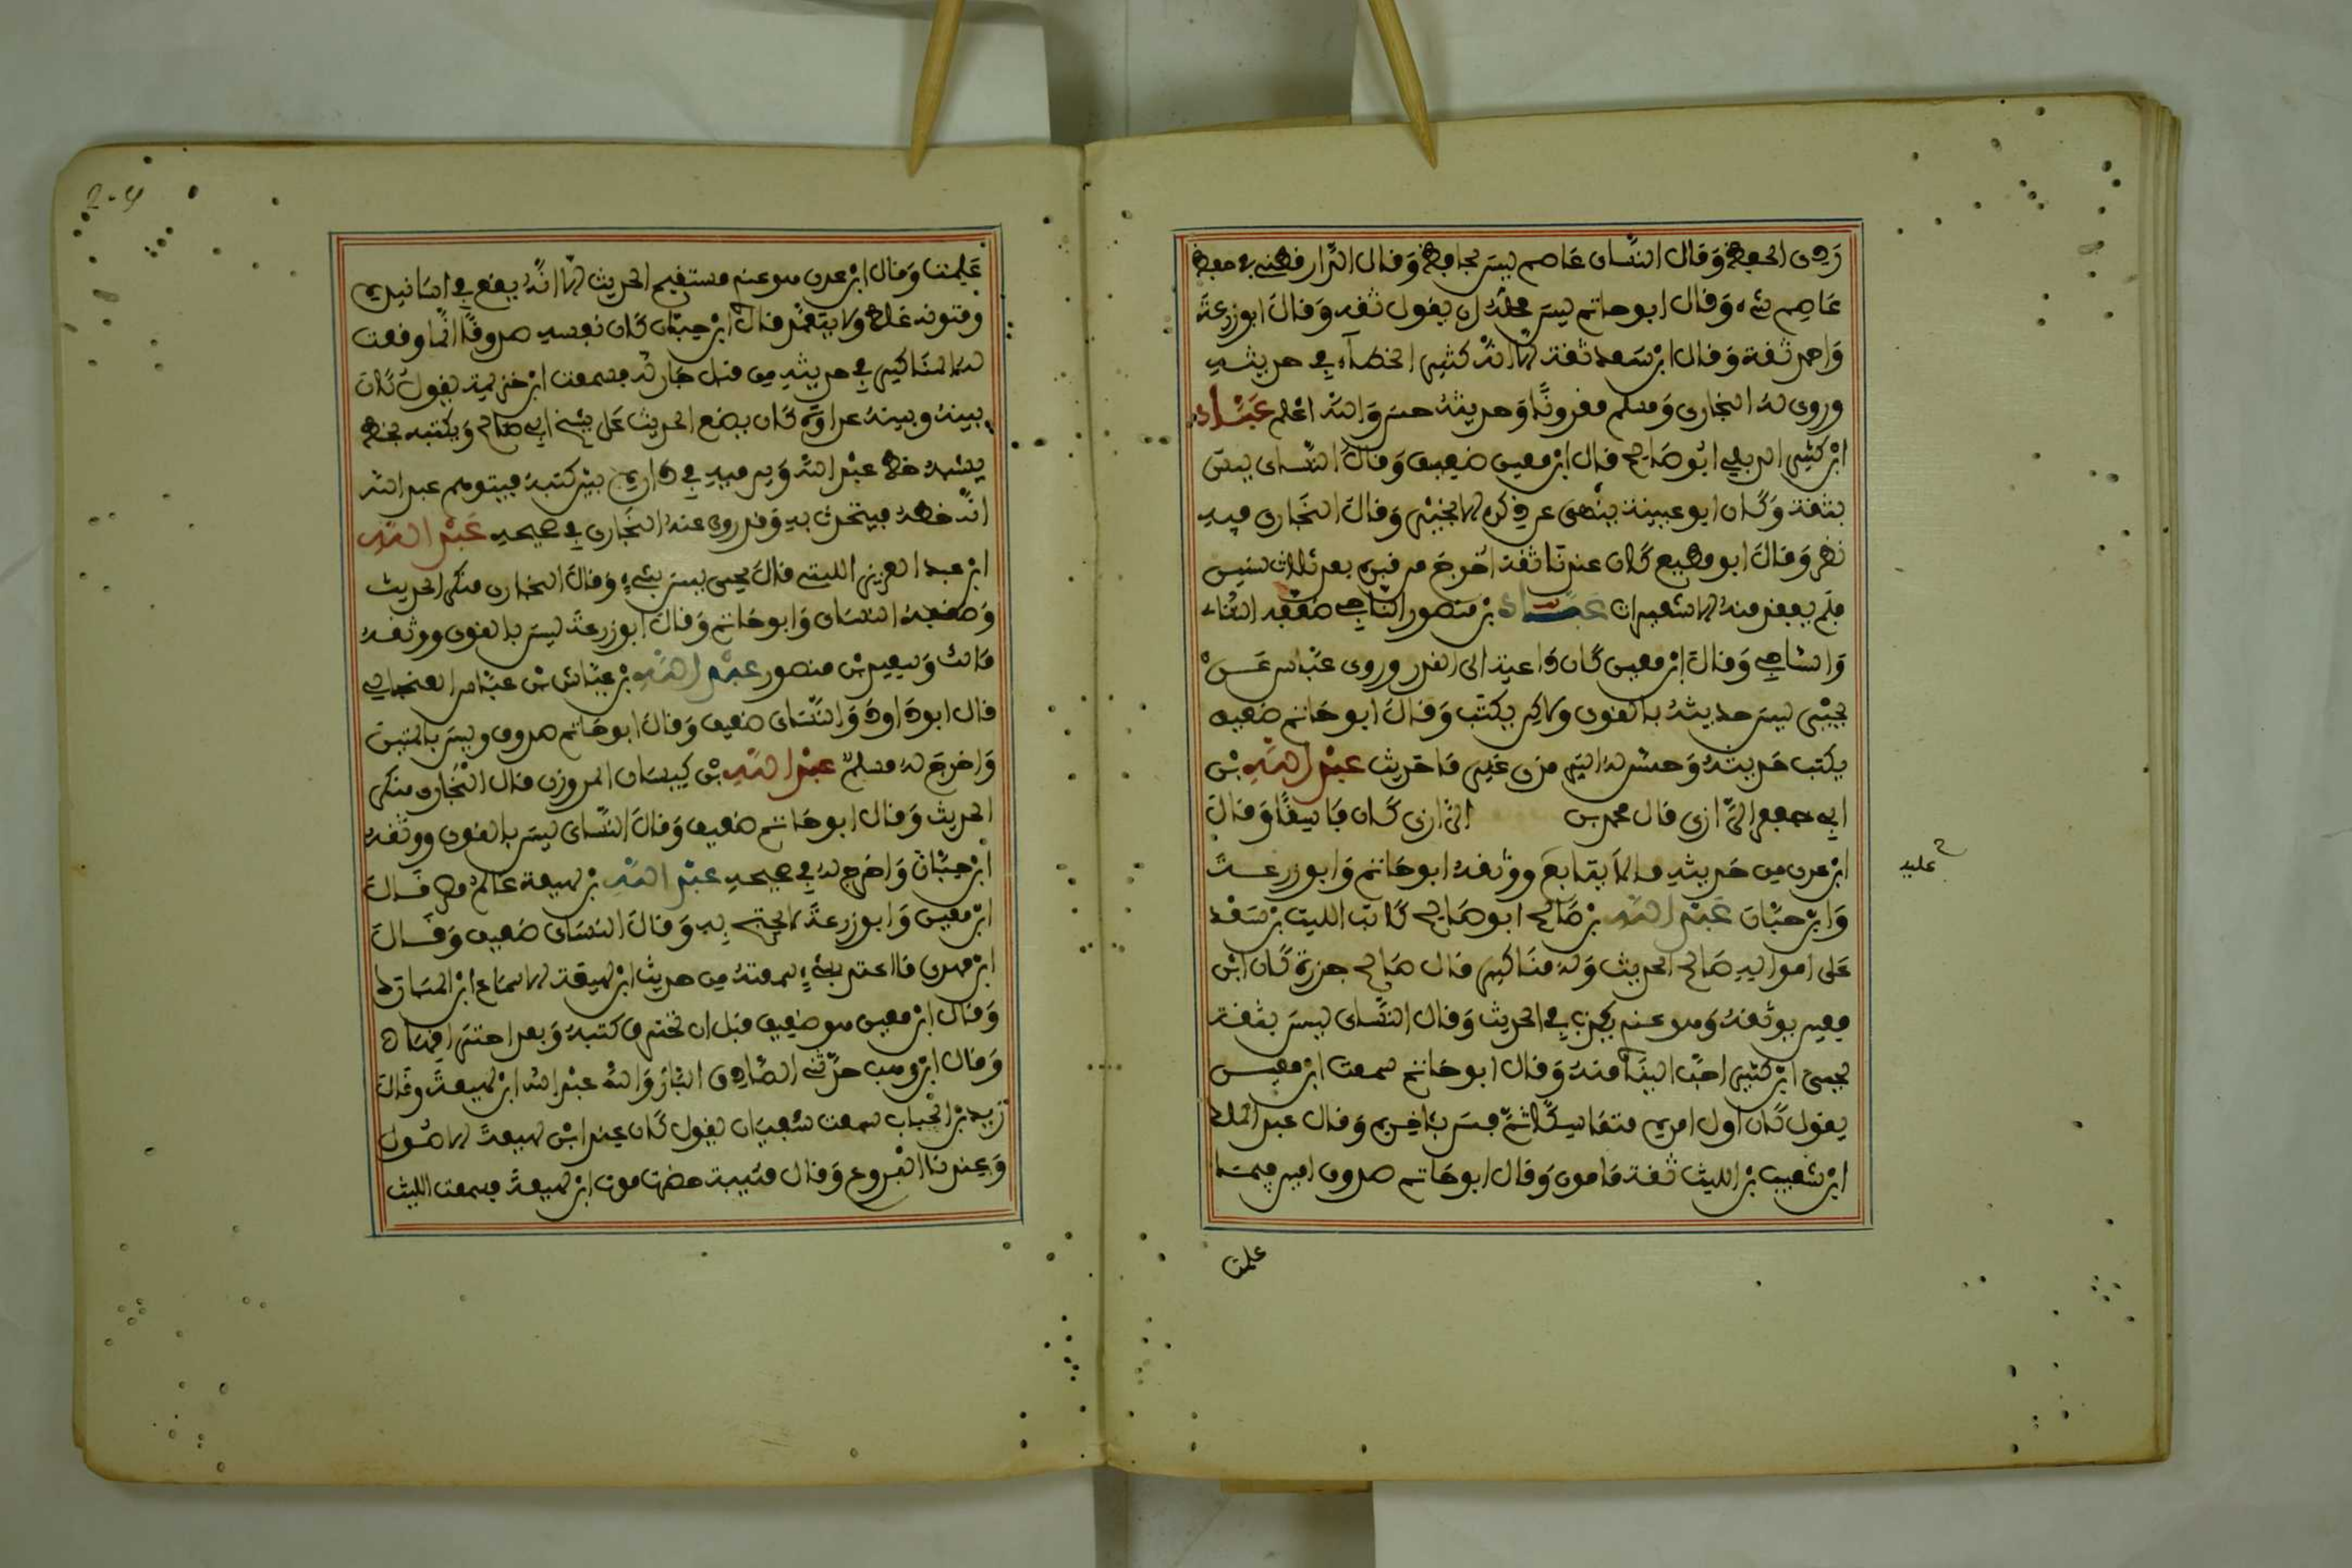 ردي الحفظ وقال النسائ عاصم ليس بحافظ وقال الدارقطني في حفظ
عاصم شيء وقال ابو حاتم ليس محله ان يقول ثقه وقال ابو زرعة
واحمد ثقة وقال ابن سعد ثقة الا انه كثير الخطإ في حديثه
وروى له البخارى ومسلم مقرونا وحديثه حسن والله اعلم عباد
ابن كثير الرملي ابو صالح قال ابن معين ضعيف وقال النسائ ليس
بثقة وكان ابو عيينة ينهى عن ذكره الا بخير وقال البخارى فيه
نظر وقال ابو مطيع كان عندنا ثقة اخرج من قبره بعد ثلاث سنين
فلم يفقد منه الا شعيرات عباد بن منصور الناجي ضعفه النساء
والساجي وقال ابن معين كان داعية الى القدر وروى عباس عن
يحيى ليس حديثه بالقوى ولاكن يكتب وقال ابو حاتم ضعيف
يكتب حديثه وحسن له الترمذي غير ما حديث عبد الله بن
ابي جعفر الرازى قال محمد بن الرازى كان فاسقا وقال
ابن عدى من حديثه ما لا يتابع ووثقه ابو حاتم وابو زرعة
عليه
وابن حبان عبد الله بن صالح ابو صالح كاتب الليث بن سعد
على امواله صالح الحديث وله مناكير قال صالح جزرة كان ابن
معين يوثقه وهو عندي يكذب في الحديث وقال النسائ ليس بثقة
يحيى ابن كثير احب الينا منه وقال ابو حاتم سمعت ابن معين
يقول كان اول امره متماسكا ثم فسد باخره وقال عبد الملك
ابن شعيب بن الليث ثقة مامون وقال ابو حاتم صدوق امين فيما
علمت
علمت وقال ابن عدى هو عندي مستقيم الحديث الا انه يقع في اسانيده
ومتونه غلط ولا يتعمد قال ابن حبان كان نفسه صدوقا انما وقعت
له المناكير في حديثه من قبل جار له فسمعت ابن خزيمة يقول كان
بينه وبينه عداوة كان يضع الحديث على شيخ ابي صالح ويكتبه بخط
يشبه خط عبد الله ويرميه في داره بين كتبه فيتوهم عبد الله
انه خطه فيتحدث به وقد روى عنه البخارى في صحيحه عبد الله
ابن عبد العزيز الليثي قال يحيى ليس بشيء وقال البخارى منكر الحديث
وضعفه النسائ وابو حاتم وقال ابو زرعة ليس بالقوى ووثقه
مالك وسعيد بن منصور عبد الله بن عياش بن عباس القتباني
قال ابو داود والنسائ ضعيف وقال ابو حاتم صدوق وليس بالمتين
واخرج له مسلم عبد الله بن كيسان المروزى قال البخارى منكر
الحديث وقال ابو حاتم ضعيف وقال النسائ ليس بالقوى ووثقه
ابن حبان واخرج له في صحيحه عبد الله بن لهيعة عالم مصر قال
ابن معين وابو زرعة لا يحتج به وقال النسائ ضعيف وقال
ابن مهدى ما اعتد بشيء سمعته من حديث ابن لهيعة الا سماع ابن المبارك
وقال ابن معين هو ضعيف قبل ان تحترق كتبه وبعد احتراقها
وقال ابن وهب حدثني الصادق البار والله عبد الله ابن لهيعة وقال
زيد بن الحباب سمعت سفيان يقول كان عند ابن لهيعة الاصول
وعندنا الفروع وقال قتيبة حضرت موت ابن لهيعة فسمعت الليث